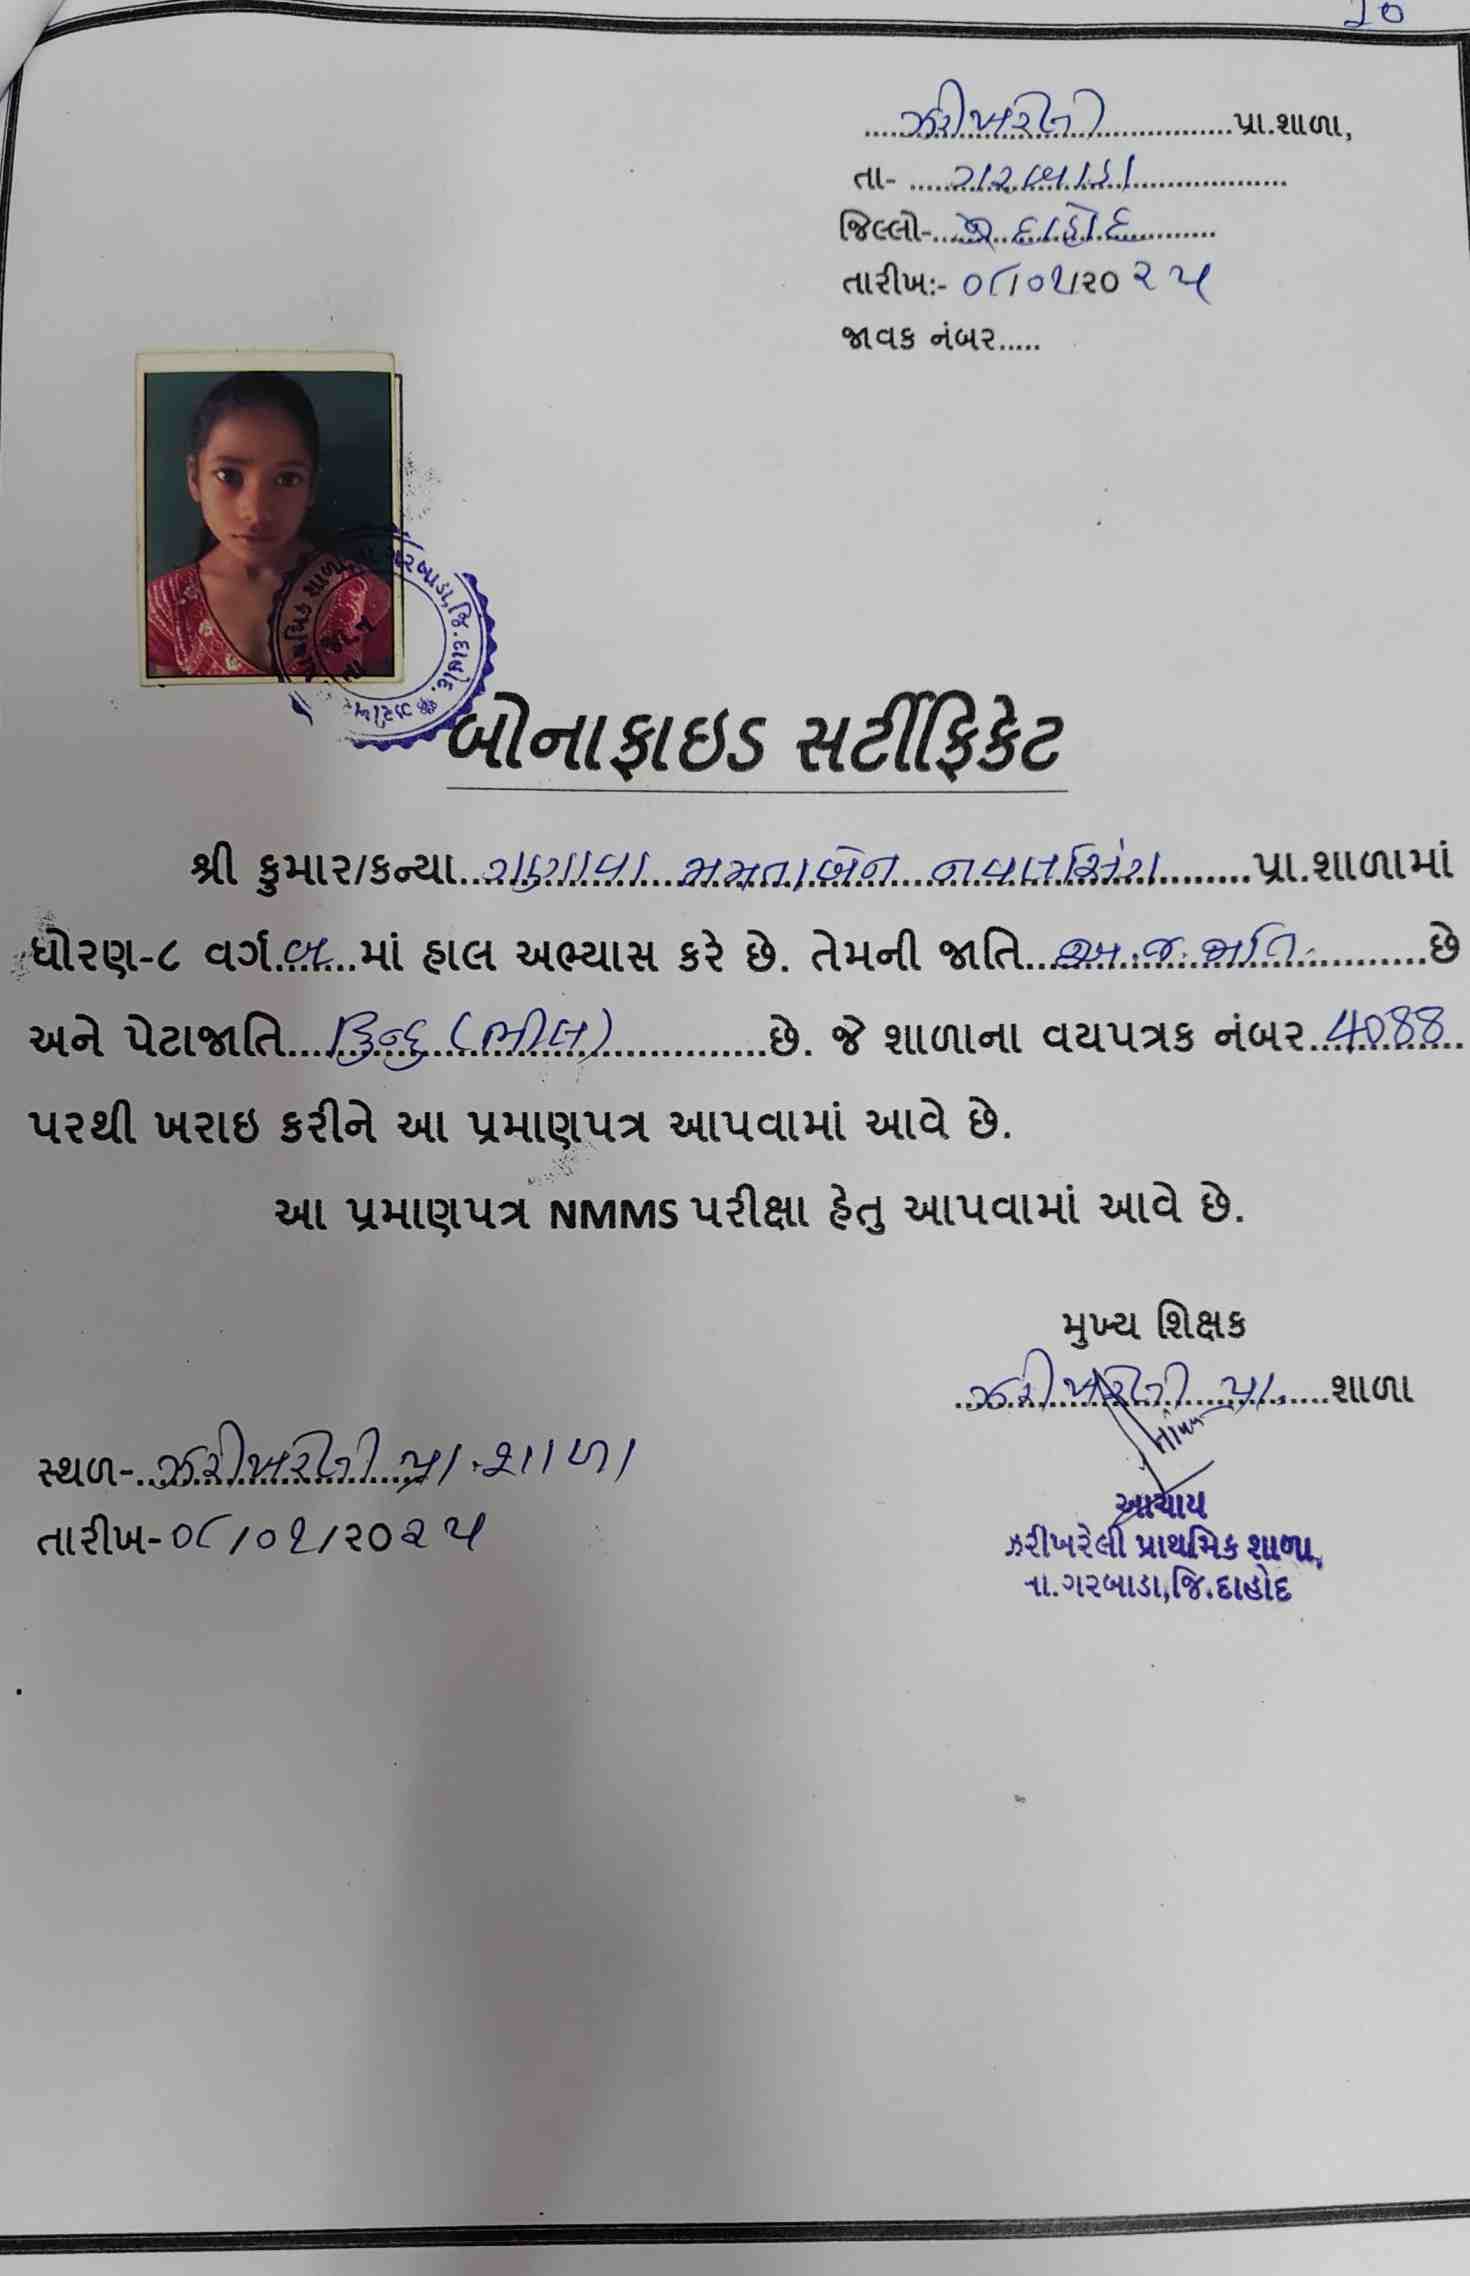 20
ઝરીખરેલી પ્રા.શાળા,
તા- ગરબાડા
જિલ્લો- દાહોદ
તારીખ:- ૦૮/૦૧/૨૦૨૫
જાવક નંબર.....
ગરબાડા,જિ.દાહોદ.
બોનાફાઇડ સર્ટીફિકેટ
શ્રી કુમાર/કન્યા ગણાવા મમતાબેન નવલસિંગ પ્રા.શાળામાં
ધોરણ-૮ વર્ગ બ માં હાલ અભ્યાસ કરે છે. તેમની જાતિ અ.જ.જાતિ. છે
અને પેટાજાતિ હિન્દુ (ભીલ) છે. જે શાળાના વયપત્રક નંબર 4088
પરથી ખરાઇ કરીને આ પ્રમાણપત્ર આપવામાં આવે છે.
આ પ્રમાણપત્ર NMMS પરીક્ષા હેતુ આપવામાં આવે છે.
મુખ્ય શિક્ષક
ઝરીખરેલી પ્રા. શાળા
સ્થળ- ઝરીખરેલી પ્રા.શાળા
તારીખ- ૦૮/૦૧/૨૦૨૫
આચાર્ય
ઝરીખરેલી પ્રાથમિક શાળા,
તા.ગરબાડા,જિ.દાહોદ